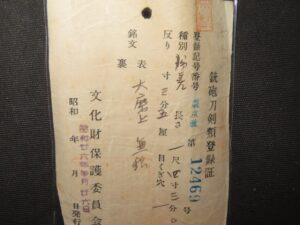 銃砲刀剣類登録証
登録記号番号 第 12469 号
種別 長さ 一尺四寸三分
反り 三分五厘 目くぎ穴
銘文 表 大磨上無銘
裏
文化財保護委員会
昭和 年 月 日発行